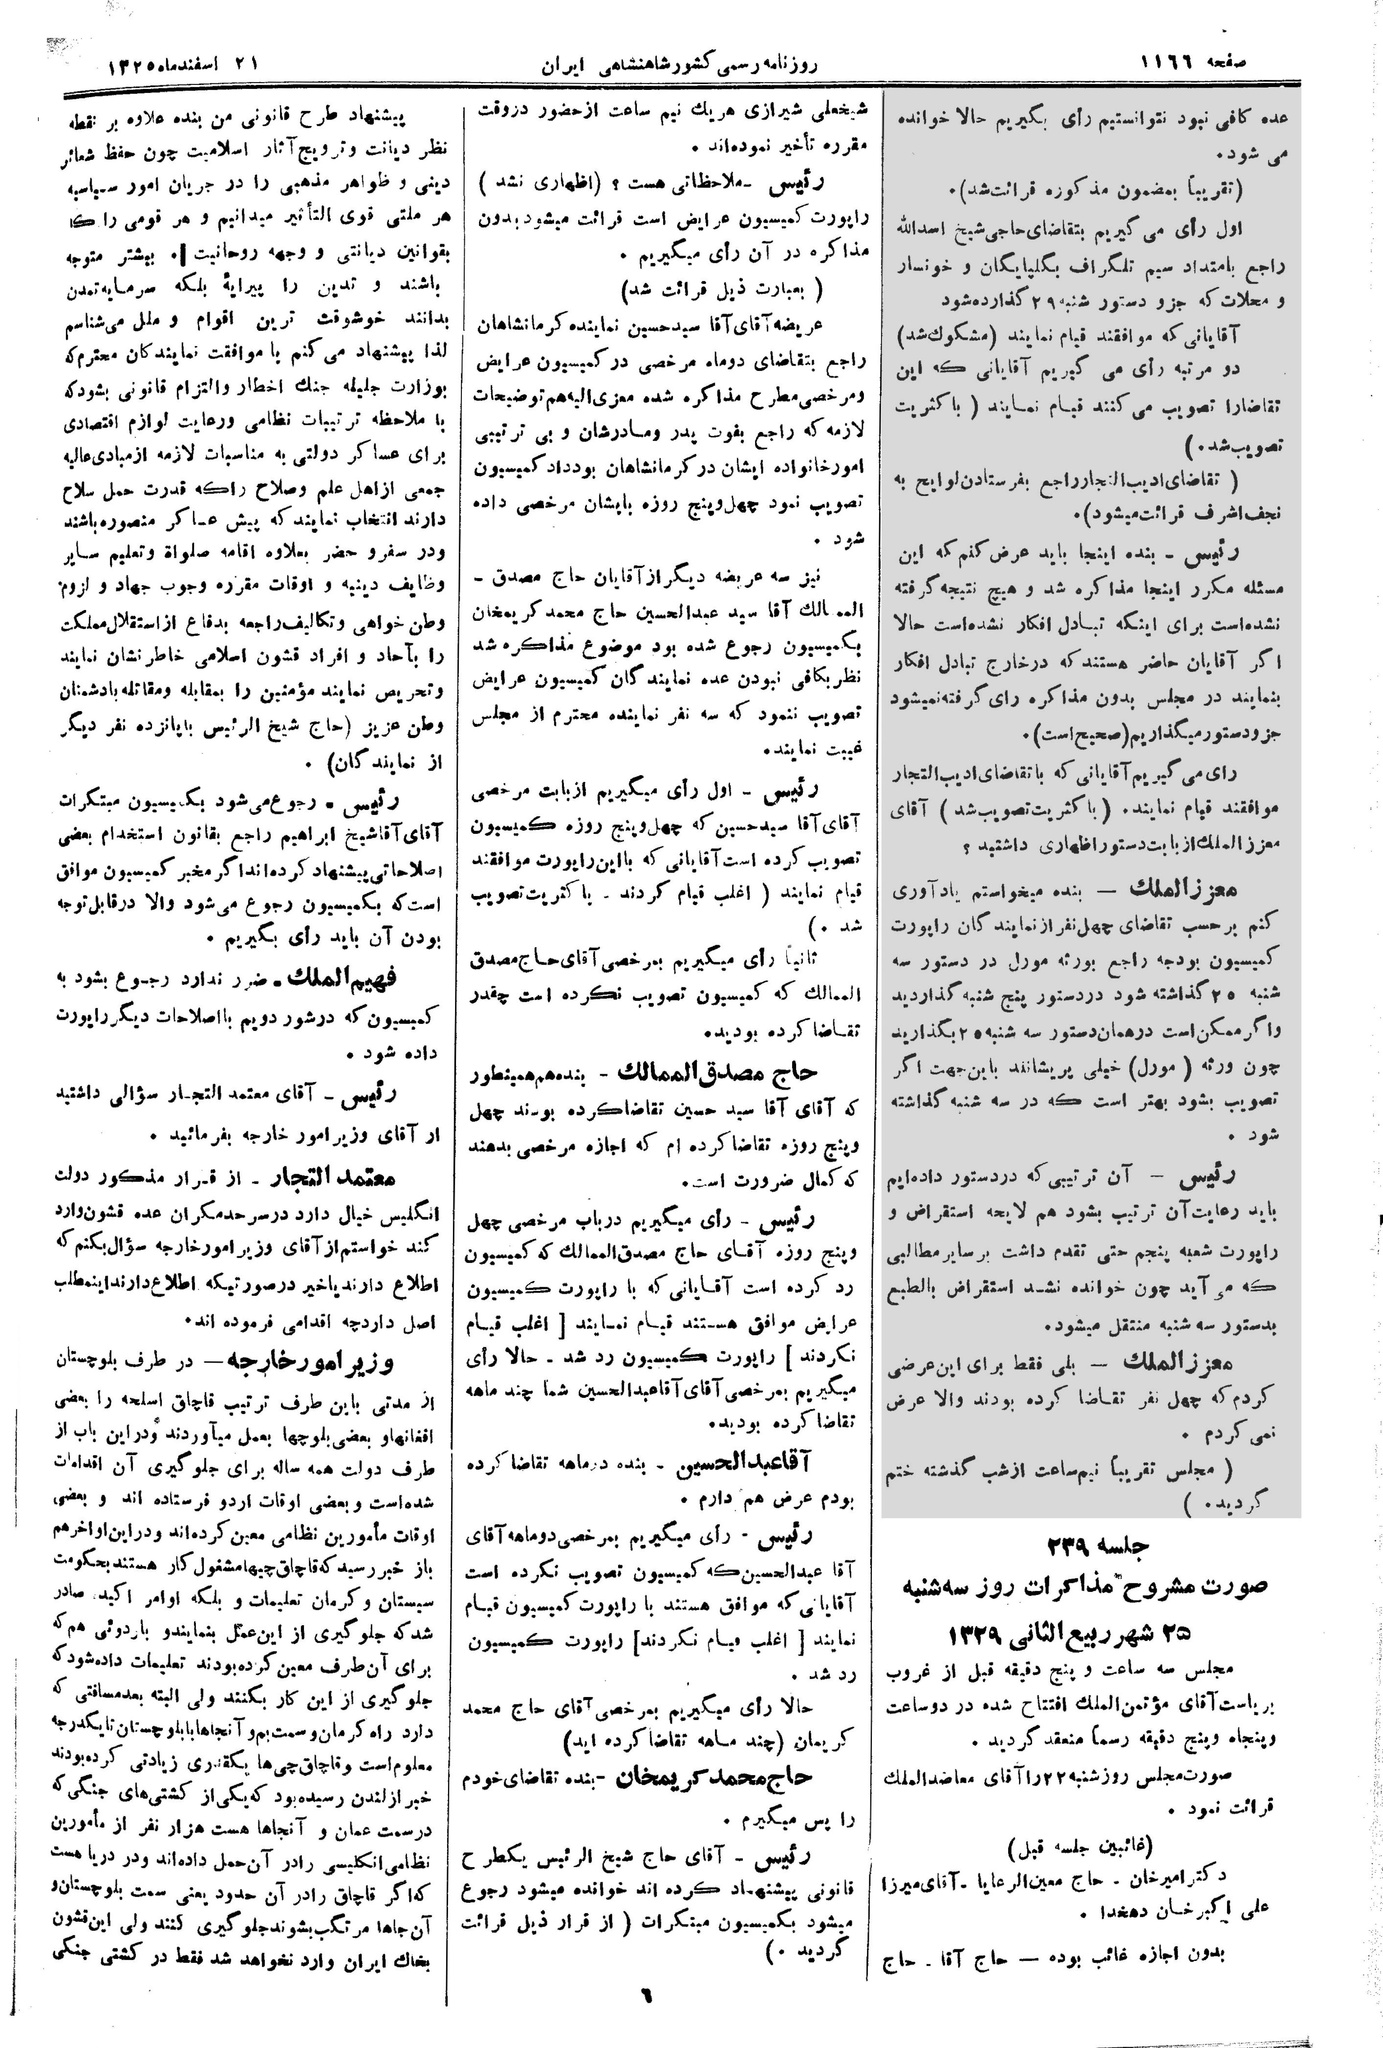 صفحه ۱۱۶۶
روزنامه رسمی کشور شاهنشاهی ایران
۲۱ اسفندماه ۱۳۲۵
عده کافی نبود نتوانستیم رأی بگیریم حالا خوانده
می شود.
(تقریباً بمضمون مذکوره قرائت شد).
اول رأی می گیریم بتقاضای حاجی شیخ اسدالله
راجع بامتداد سیم تلگراف بگلپایگان و خونسار
و محلات که جزو دستور شنبه ۲۹ گذارده شود
آقایانی که موافقند قیام نمایند (مشکوک شد)
دو مرتبه رأی می گیریم آقایانی که این
تقاضارا تصویب می کنند قیام نمایند ( باکثریت
تصویب شد.)
( تقاضای ادیب التجار راجع بفرستادن لوایح به
نجف اشرف قرائت میشود).
رئیس - بنده اینجا باید عرض کنم که این
مسئله مکرر اینجا مذاکره شد و هیچ نتیجه گرفته
نشده است برای اینکه تبادل افکار نشده است حالا
اگر آقایان حاضر هستند که در خارج تبادل افکار
بنمایند در مجلس بدون مذاکره رای گرفته نمیشود
جزو دستور میگذاریم (صحیح است).
رای می گیریم آقایانی که با تقاضای ادیب التجار
موافقند قیام نمایند. ( باکثریت تصویب شد ) آقای
معززالملک از بابت دستور اظهاری داشتید ؟
معززالملک — بنده میخواستم یادآوری
کنم بر حسب تقاضای چهل نفر از نمایندگان راپورت
کمیسیون بودجه راجع بورثه مورل در دستور سه
شنبه ۲۵ گذاشته شود در دستور پنج شنبه گذاردید
واگر ممکن است در همان دستور سه شنبه ۲۵ بگذارید
چون ورثه ( مورل) خیلی پریشانند باین جهت اگر
تصویب بشود بهتر است که در سه شنبه گذاشته
شود .
رئیس — آن ترتیبی که در دستور داده ایم
باید رعایت آن ترتیب بشود هم لایحه استقراض و
راپورت شعبه پنجم حتی تقدم داشت بر سایر مطالبی
که می آید چون خوانده نشد استقراض بالطبع
بدستور سه شنبه منتقل میشود.
معززالملک — بلی فقط برای این عرضی
کردم که چهل نفر تقاضا کرده بودند والا عرض
نمی کردم .
( مجلس تقریباً نیم ساعت از شب گذشته ختم
گردید. )
جلسه ۲۳۹
صورت مشروح مذاکرات روز سه شنبه
۲۵ شهر ربیع الثانی ۱۳۲۹
مجلس سه ساعت و پنج دقیقه قبل از غروب
بریاست آقای مؤتمن الملک افتتاح شده در دو ساعت
وپنجاه وپنج دقیقه رسماً منعقد گردید .
صورت مجلس روز شنبه ۲۲ را آقای معاضدالملک
قرائت نمود .
(غائبین جلسه قبل)
دکتر امیرخان - حاج معین الرعایا - آقای میرزا
علی اکبر خان دهخدا .
بدون اجازه غائب بوده — حاج آقا - حاج
شیخعلی شیرازی هریک نیم ساعت از حضور در وقت
مقرره تأخیر نموده اند .
رئیس - ملاحظاتی هست ؟ (اظهاری نشد )
راپورت کمیسیون عرایض است قرائت میشود بدون
مذاکره در آن رأی میگیریم .
( بعبارت ذیل قرائت شد)
عریضه آقای آقا سید حسین نماینده کرمانشاهان
راجع بتقاضای دوماه مرخصی در کمیسیون عرایض
ومرخصی مطرح مذاکره شده معزی الیه هم توضیحات
لازمه که راجع بفوت پدر ومادرشان و بی ترتیبی
امور خانواده ایشان در کرمانشاهان بود داد کمیسیون
تصویب نمود چهل وپنج روزه بایشان مرخصی داده
شود .
نیز سه عریضه دیگر از آقایان حاج مصدق -
الممالک آقا سید عبدالحسین حاج محمد کریمخان
بکمیسیون رجوع شده بود موضوع مذاکره شد
نظر بکافی نبودن عده نمایندگان کمیسیون عرایض
تصویب ننمود که سه نفر نماینده محترم از مجلس
غیبت نمایند.
رئیس - اول رأی میگیریم از بابت مرخصی
آقای آقا سید حسین که چهل وپنج روزه کمیسیون
تصویب کرده است آقایانی که با این راپورت موافقند
قیام نمایند ( اغلب قیام کردند - باکثریت تصویب
شد .)
ثانیاً رأی میگیریم بمرخصی آقای حاج مصدق
الممالک که کمیسیون تصویب نکرده است چقدر
تقاضا کرده بودید.
حاج مصدق الممالک - بنده هم همینطور
که آقای آقا سید حسین تقاضا کرده بودند چهل
وپنج روزه تقاضا کرده ام که اجازه مرخصی بدهند
که کمال ضرورت است.
رئیس - رأی میگیریم در باب مرخصی چهل
وپنج روزه آقای حاج مصدق الممالک که کمیسیون
رد کرده است آقایانی که با راپورت کمیسیون
عرایض موافق هستند قیام نمایند [ اغلب قیام
نکردند ] راپورت کمیسیون رد شد - حالا رأی
میگیریم بمرخصی آقای آقا عبدالحسین شما چند ماهه
تقاضا کرده بودید.
آقا عبدالحسین - بنده دوماهه تقاضا کرده
بودم عرض هم دارم .
رئیس - رأی میگیریم بمرخصی دوماهه آقای
آقا عبدالحسین که کمیسیون تصویب نکرده است
آقایانی که موافق هستند با راپورت کمیسیون قیام
نمایند [ اغلب قیام نکردند] راپورت کمیسیون
رد شد .
حالا رأی میگیریم بمرخصی آقای حاج محمد
کریمان (چند ماهه تقاضا کرده اید)
حاج محمد کریمخان - بنده تقاضای خودم
را پس میگیرم .
رئیس - آقای حاج شیخ الرئیس یکطرح
قانونی پیشنهاد کرده اند خوانده میشود رجوع
میشود بکمیسیون مبتکرات ( از قرار ذیل قرائت
گردید .)
پیشنهاد طرح قانونی من بنده علاوه بر نقطه
نظر دیانت وترویج آثار اسلامیت چون حفظ شعائر
دینی و ظواهر مذهبی را در جریان امور سیاسیه
هر ملتی قوی التأثیر میدانیم و هر قومی را که
بقوانین دیانتی و وجهه روحانیت . بیشتر متوجه
باشند و تدین را پیرایهٔ بلکه سرمایه تمدن
بدانند خوشوقت ترین اقوام و ملل می شناسم
لذا پیشنهاد می کنم با موافقت نمایندکان محترم که
بوزارت جلیله جنک اخطار والتزام قانونی بشود که
با ملاحظه ترتیبات نظامی ورعایت لوازم اقتصادی
برای عساکر دولتی به مناسبات لازمه از مبادی عالیه
جمعی از اهل علم وصلاح را که قدرت حمل سلاح
دارند انتخاب نمایند که پیش عساکر منصوره باشند
ودر سفر و حضر بعلاوه اقامه صلواة وتعلیم سایر
وظایف دینیه و اوقات مقرره وجوب جهاد و لزوم
وطن خواهی و تکالیف راجعه بدفاع از استقلال مملکت
را بآحاد و افراد قشون اسلامی خاطر نشان نمایند
وتحریص نمایند مؤمنین را بمقابله ومقاتله بادشمنان
وطن عزیز (حاج شیخ الرئیس با پانزده نفر دیگر
از نمایندگان) .
رئیس - رجوع می شود بکمیسیون مبتکرات
آقای آقا شیخ ابراهیم راجع بقانون استخدام بعضی
اصلاحاتی پیشنهاد کرده اند اگر مخبر کمیسیون موافق
است که بکمیسیون رجوع می شود والا در قابل توجه
بودن آن باید رأی بگیریم .
فهیم الملک - ضرر ندارد رجوع بشود به
کمیسیون که در شور دویم با اصلاحات دیگر راپورت
داده شود .
رئیس - آقای معتمد التجار سؤالی داشتید
از آقای وزیر امور خارجه بفرمائید .
معتمد التجار - از قرار مذکور دولت
انگلیس خیال دارد در سرحد مکران عده قشون وارد
کند خواستم از آقای وزیر امور خارجه سؤال بکنم که
اطلاع دارند یاخیر در صورتیکه اطلاع دارند اینمطلب
اصل دارد چه اقدامی فرموده اند.
وزیر امور خارجه — در طرف بلوچستان
از مدتی باین طرف ترتیب قاچاق اسلحه را بعضی
افغانها و بعضی بلوچها بعمل میآوردند ودر این باب از
طرف دولت همه ساله برای جلوگیری آن اقدامات
شده است و بعضی اوقات اردو فرستاده اند و بعضی
اوقات مأمورین نظامی معین کرده اند ودر این اواخر هم
باز خبر رسید که قاچاق چیها مشغول کار هستند بحکومت
سیستان و کرمان تعلیمات و بلکه اوامر اکید صادر
شد که جلوگیری از این عمل بنمایند و باردوئی هم که
برای آن طرف معین کرده بودند تعلیمات داده شود که
جلوگیری از این کار بکنند ولی البته بعد مسافتی که
دارد راه کرمان و سمت بم و آنجاها با بلوچستان تا یکدرجه
معلوم است و قاچاق چی ها بکقدری زیادتی کرده بودند
خبر از لندن رسیده بود که یکی از کشتی های جنگی که
در سمت عمان و آنجاها هست هزار نفر از مأمورین
نظامی انکلیسی را در آن حمل داده اند ودر دریا هست
که اگر قاچاق را در آن حدود یعنی سمت بلوچستان و
آن جاها مرتکب بشوند جلوگیری کنند ولی این قشون
بخاک ایران وارد نخواهد شد فقط در کشتی جنگی
۶